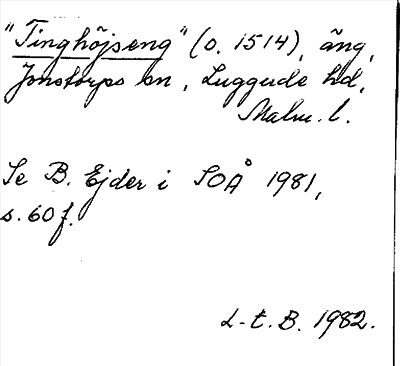 "Tinghöjseng" (o. 1514), äng,
Jonstorps sn, Luggude hd,
Malm. l.
Se B. Ejder i SOÅ 1981,
s. 60 f.
L-t. B. 1982.